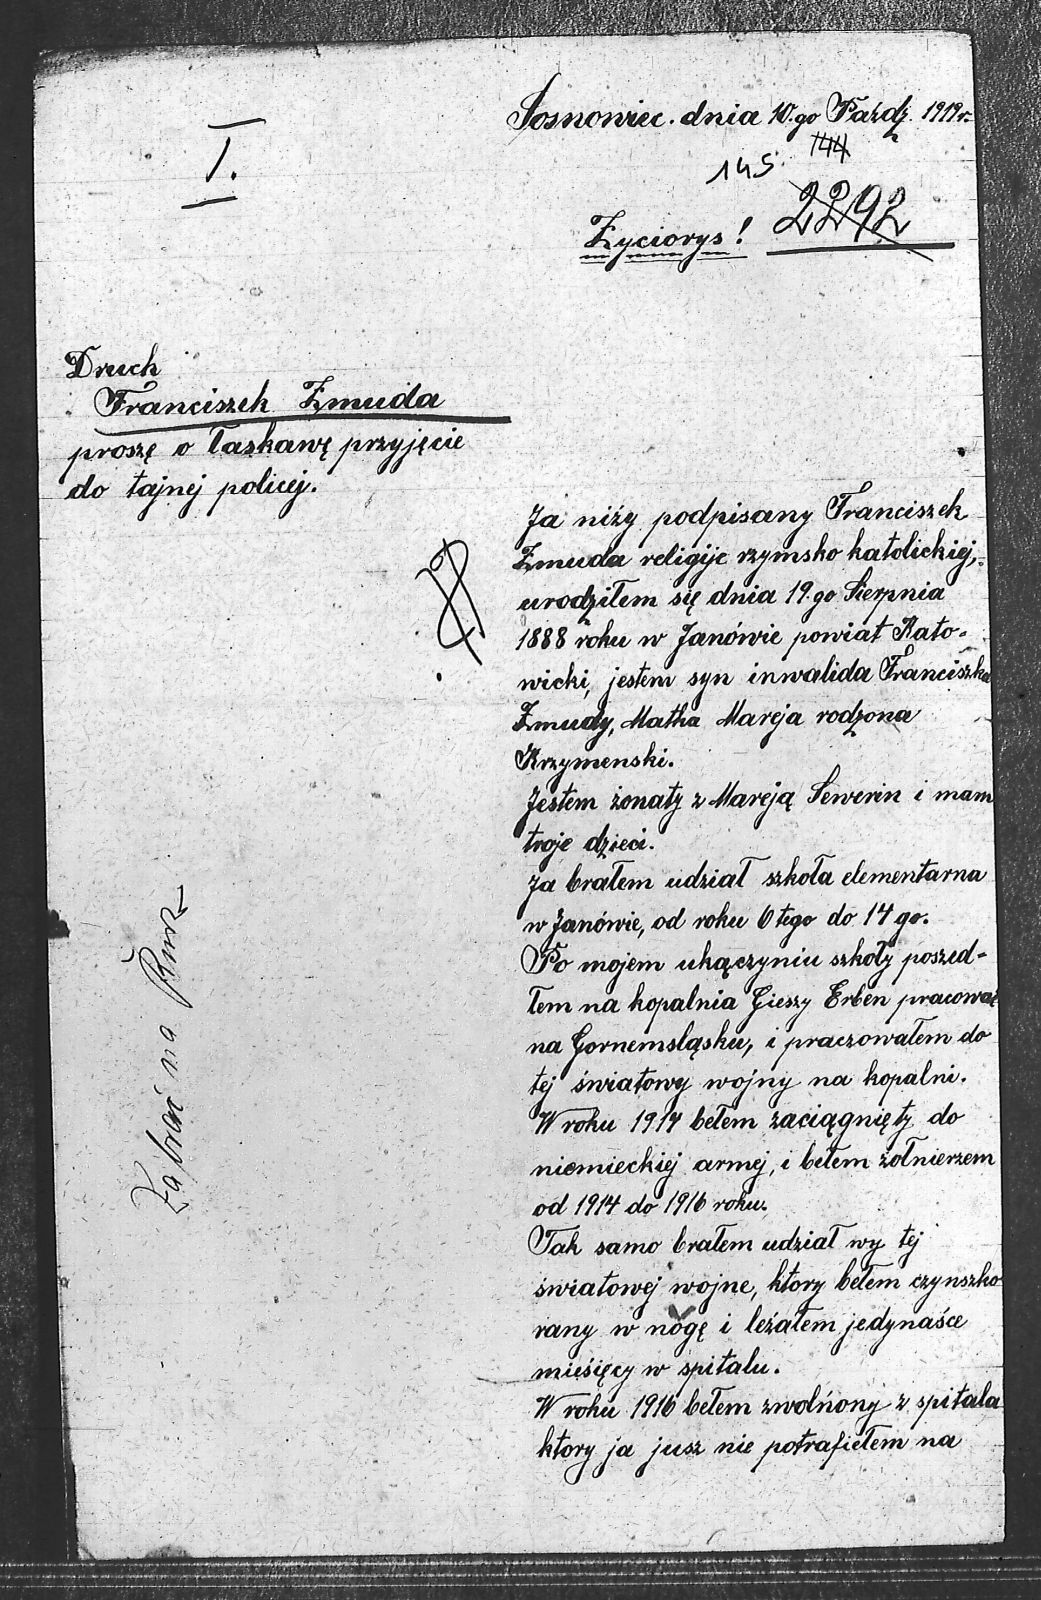 Sosnowiec. dnia 10.go Paźdz. 1919 r.
I.
145. 144
2292
Życiorys!
Druch
Franciszek Żmuda
proszę o łaskawę przyjęcie
do tajnej policej.
Ja niży podpisany Franciszek
Żmuda religije rzymsko katolickiej,
urodziłem się dnia 19.go Sierpnia
1888 roku w Janówie powiat Kato-
wicki, jestem syn inwalida Franciszka
Żmudy, Matka Mareja rodzona
Krzymenski.
Jestem żonaty z Mareją Sewerin i mam
troje dzieci.
Ja brałem udział szkoła elementarna
w Janówie, od roku 6 tego do 14 go.
Po mojem ukączyniu szkoły poszed-
łem na kopalnia Gieszy Erben pracować
na Gornemsląsku, i praczowałem do
tej światowy wojny na kopalni.
W roku 1914 bełem zaciągnięty do
niemieckiej armej, i bełem żołnierzem
od 1914 do 1916 roku.
Tak samo brałem udział wy tej
światowej wojne, ktory bełem czynszko
rany w nogę i leżałem jedynaśce
mieśięcy w spitalu.
W roku 1916 bełem zwolńony z spitala
ktory ja jusz nie potrafiełem na
Zabrać na